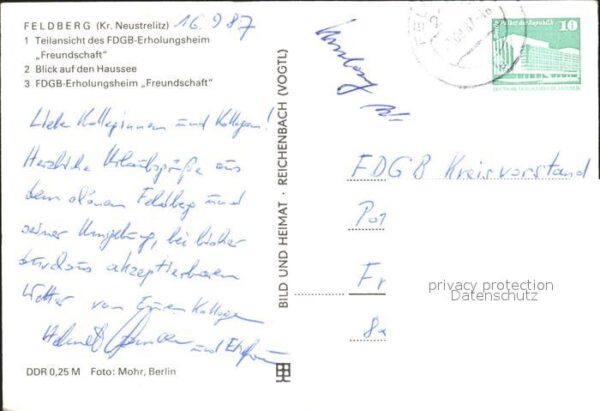 FELDBERG (Kr. Neustrelitz) 16.9.87
1 Teilansicht des FDGB-Erholungsheim
„Freundschaft"
2 Blick auf den Haussee
3 FDGB-Erholungsheim „Freundschaft"
Liebe Kolleginnen und Kollegen!
Herzliche Urlaubsgrüße aus
dem schönen Feldberg und
seiner Umgebung, bei bisher
durchaus akzeptierbarem
Wetter von Eurem Kollegen
Helmut und Ehefrau
DDR 0,25 M Foto: Mohr, Berlin
BILD UND HEIMAT · REICHENBACH (VOGTL)
10
FDGB Kreisvorstand
Pos
Fr
8x
privacy protection
Datenschutz